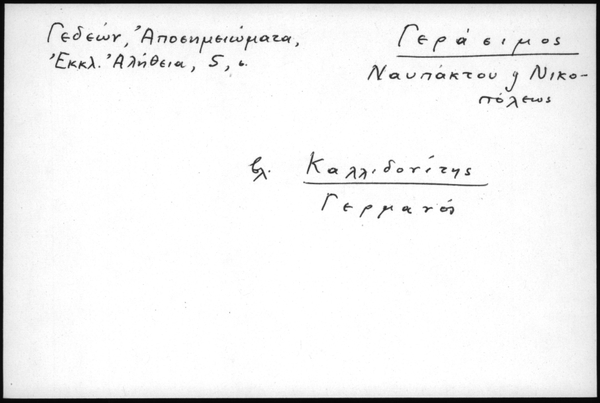 Γεδεών, Ἀποσημειώματα,
Ἐκκλ. Ἀλήθεια, 5, σ.
Γεράσιμος
Ναυπάκτου ἤ Νικο-
πόλεως
βλ. Καλλιδονίτης
Γερμανός